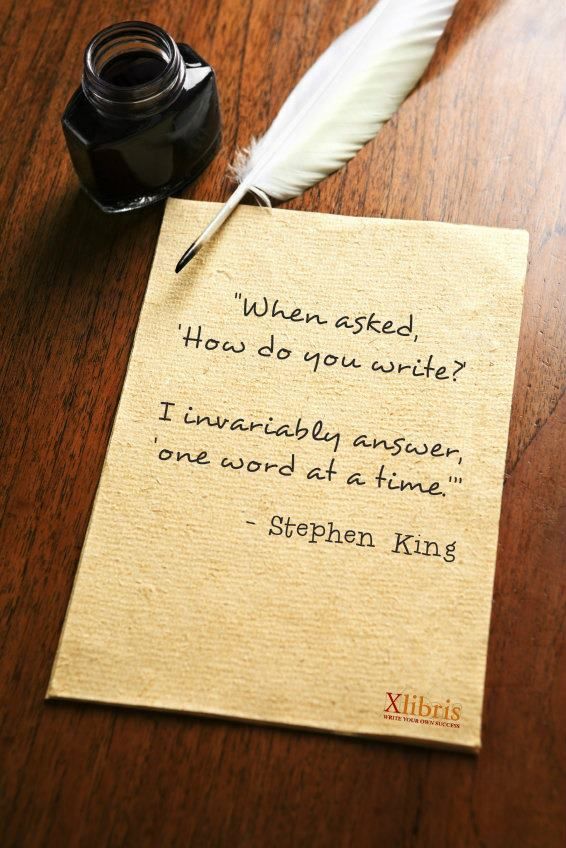 "When asked,
'How do you write?'
I invariably answer,
'one word at a time.'"
- Stephen King
Xlibris
WRITE YOUR OWN SUCCESS